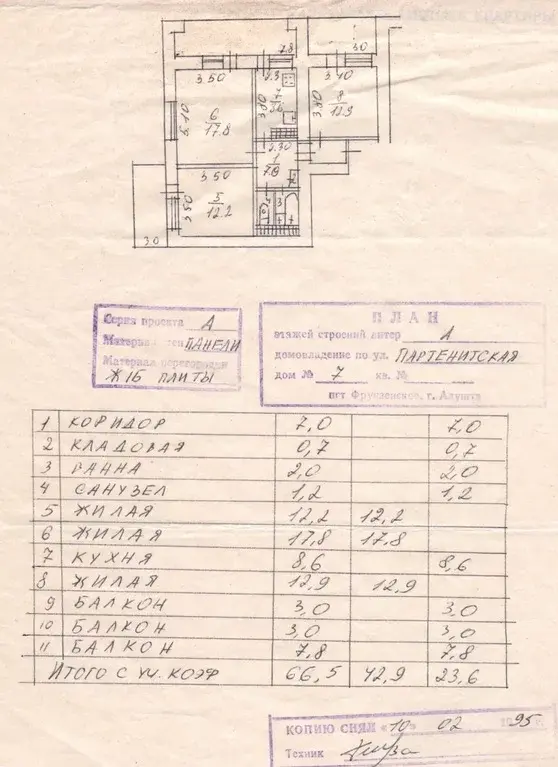 7.8
3.0
3.50
2.3
3.40
6.10
6
17.8
3.80
8
12.9
2.30
1
7.0
3.50
3.50
5
12.2
3
3.0
Серия проекта А
Материал стен ПАНЕЛИ
Материал перегородки
Ж/Б ПЛИТЫ
ПЛАН
этажей строений литер А
домовладение по ул. ПАРТЕНИТСКАЯ
дом № 7 кв. №
пгт Фрунзенское, г. Алушта
1 КОРИДОР 7,0 7,0
2 КЛАДОВАЯ 0,7 0,7
3 ВАННА 2,0 2,0
4 САНУЗЕЛ 1,2 1,2
5 ЖИЛАЯ 12,2 12,2
6 ЖИЛАЯ 17,8 17,8
7 КУХНЯ 8,6 8,6
8 ЖИЛАЯ 12,9 12,9
9 БАЛКОН 3,0 3,0
10 БАЛКОН 3,0 3,0
11 БАЛКОН 7,8 7,8
ИТОГО С УЧ. КОЭФ 66,5 42,9 23,6
КОПИЮ СНЯЛ «10» 02 1995 г.
Техник